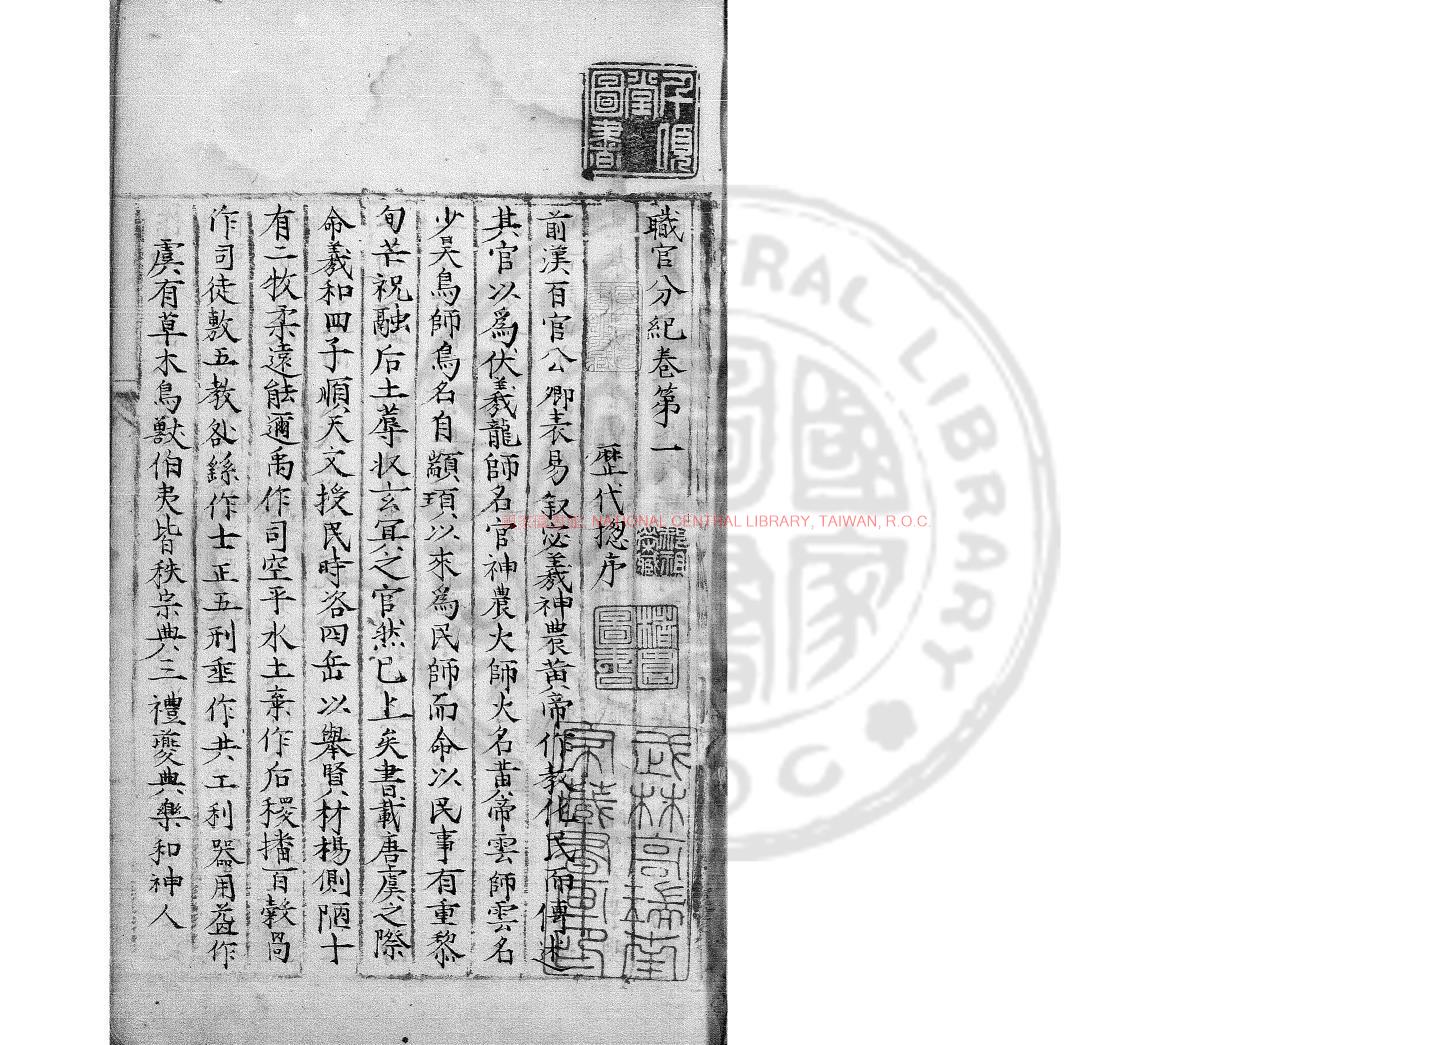 職官分紀卷第一
歷代揔序
前漢百官公卿表易叙宓羲神農黃帝作教化民而傳述
其官以為伏羲龍師名官神農火師火名黃帝雲師雲名
少昊鳥師鳥名自顓頊以來為民師而命以民事有重黎
句芒祝融后土蓐收玄冥之官然已上矣書載唐虞之際
命羲和四子順天文授民時咨四岳以舉賢材揚側陋十
有二牧柔遠能邇禹作司空平水土棄作后稷播百穀卨
作司徒敷五教咎繇作士正五刑垂作共工利器用益作
虞有草木鳥獸伯夷皆秩宗典三禮夔典樂和神人
千頃堂圖書
武林高瑞南家藏書畫印
NATIONAL CENTRAL LIBRARY, TAIWAN, R.O.C.